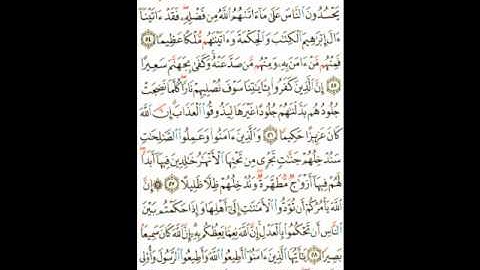 يَحْسُدُونَ النَّاسَ عَلَىٰ مَا ءَاتَىٰهُمُ اللَّهُ مِن فَضْلِهِۦ فَقَدْ ءَاتَيْنَا
ءَالَ إِبْرَٰهِيمَ الْكِتَٰبَ وَالْحِكْمَةَ وَءَاتَيْنَٰهُم مُّلْكًا عَظِيمًا
٥٤ فَمِنْهُم مَّنْ ءَامَنَ بِهِۦ وَمِنْهُم مَّن صَدَّ عَنْهُ وَكَفَىٰ بِجَهَنَّمَ سَعِيرًا
٥٥ إِنَّ الَّذِينَ كَفَرُوا بِـَٔايَٰتِنَا سَوْفَ نُصْلِيهِمْ نَارًا كُلَّمَا نَضِجَتْ
جُلُودُهُم بَدَّلْنَٰهُمْ جُلُودًا غَيْرَهَا لِيَذُوقُوا الْعَذَابَ إِنَّ اللَّهَ
كَانَ عَزِيزًا حَكِيمًا ٥٦ وَالَّذِينَ ءَامَنُوا وَعَمِلُوا الصَّٰلِحَٰتِ
سَنُدْخِلُهُمْ جَنَّٰتٍ تَجْرِي مِن تَحْتِهَا الْأَنْهَٰرُ خَٰلِدِينَ فِيهَا أَبَدًا
لَّهُمْ فِيهَا أَزْوَٰجٌ مُّطَهَّرَةٌ وَنُدْخِلُهُمْ ظِلًّا ظَلِيلًا ٥٧ ۞ إِنَّ
اللَّهَ يَأْمُرُكُمْ أَن تُؤَدُّوا الْأَمَٰنَٰتِ إِلَىٰ أَهْلِهَا وَإِذَا حَكَمْتُم بَيْنَ
النَّاسِ أَن تَحْكُمُوا بِالْعَدْلِ إِنَّ اللَّهَ نِعِمَّا يَعِظُكُم بِهِۦ إِنَّ اللَّهَ كَانَ سَمِيعًا
بَصِيرًا ٥٨ يَٰٓأَيُّهَا الَّذِينَ ءَامَنُوا أَطِيعُوا اللَّهَ وَأَطِيعُوا الرَّسُولَ وَأُولِي